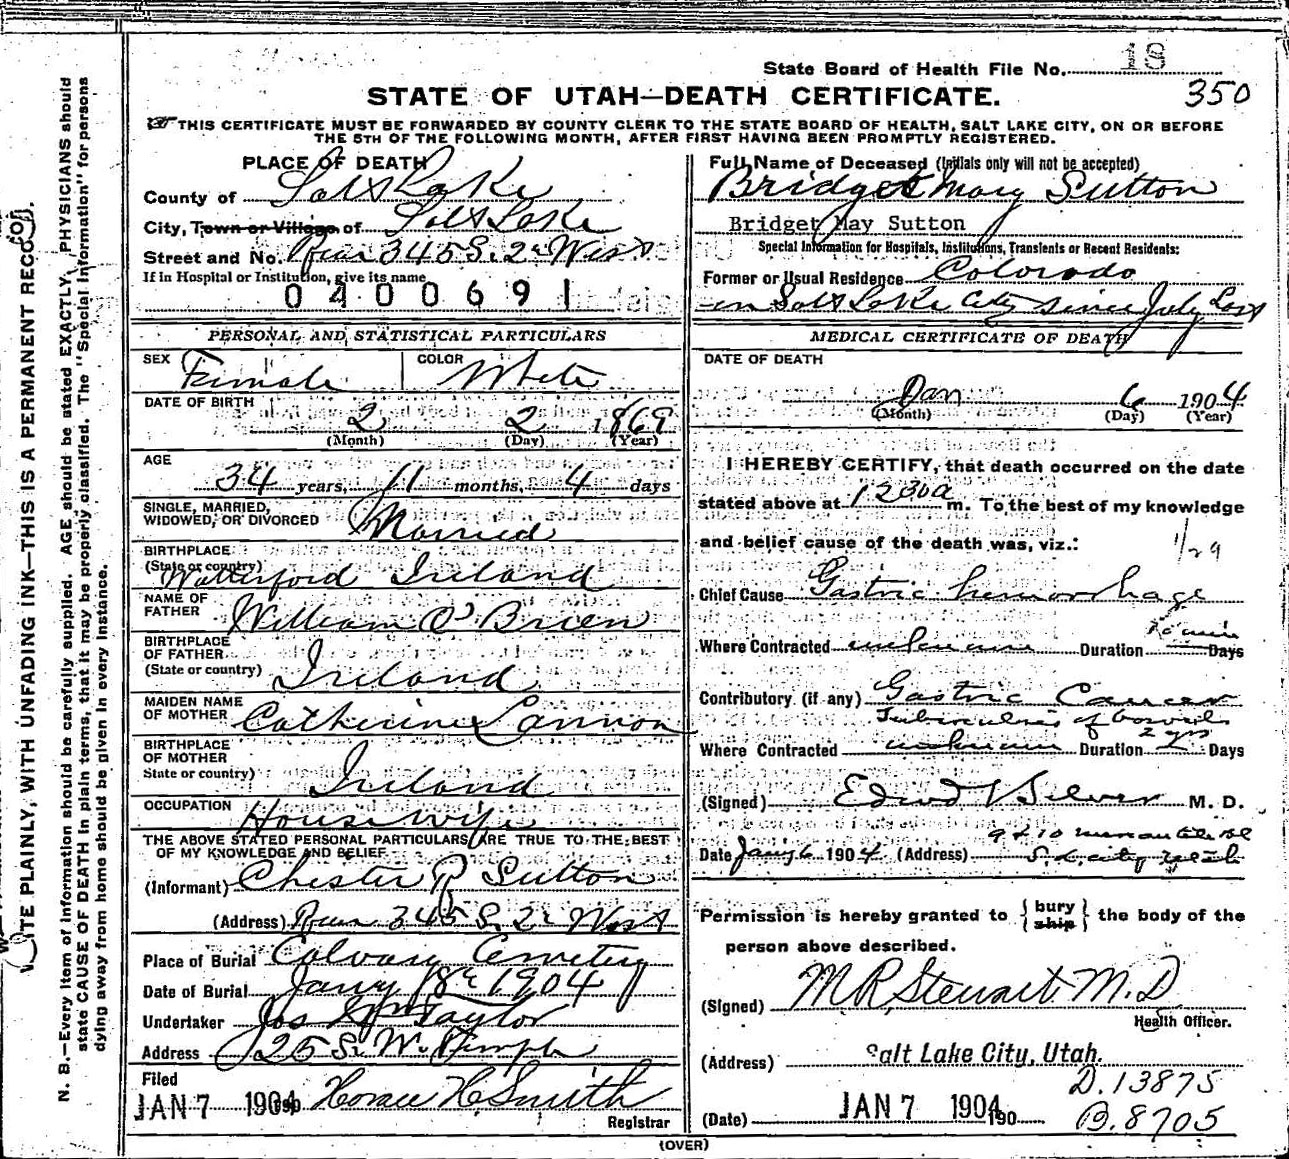 State Board of Health File No. 18
350
STATE OF UTAH—DEATH CERTIFICATE.
THIS CERTIFICATE MUST BE FORWARDED BY COUNTY CLERK TO THE STATE BOARD OF HEALTH, SALT LAKE CITY, ON OR BEFORE
THE 5TH OF THE FOLLOWING MONTH, AFTER FIRST HAVING BEEN PROMPTLY REGISTERED.
PLACE OF DEATH
County of Salt Lake
City, Town or Village of Salt Lake
Street and No. Rear 345 S. 2d West
If in Hospital or Institution, give its name
0400691
PERSONAL AND STATISTICAL PARTICULARS
SEX Female COLOR White
DATE OF BIRTH
2 2 1869
(Month) (Day) (Year)
AGE
34 years, 11 months, 4 days
SINGLE, MARRIED,
WIDOWED, OR DIVORCED Married
BIRTHPLACE
(State or country) Watterford Ireland
NAME OF
FATHER William O'Brien
BIRTHPLACE
OF FATHER
(State or country) Ireland
MAIDEN NAME
OF MOTHER Catherine Cannon
BIRTHPLACE
OF MOTHER
State or country) Ireland
OCCUPATION Housewife
THE ABOVE STATED PERSONAL PARTICULARS ARE TRUE TO THE BEST
OF MY KNOWLEDGE AND BELIEF
(Informant) Chester R Sutton
(Address) Rear 345 S. 2d West
Place of Burial Calvary Cemetery
Date of Burial Jany 8th 1904
Undertaker Jos Wm Taylor
Address 25 S. W. Temple
Filed
JAN 7 1904 190 Horace H. Smith
Registrar
Full Name of Deceased (Initials only will not be accepted)
Bridget Mary Sutton
Bridget May Sutton
Special Information for Hospitals, Institutions, Transients or Recent Residents:
Former or Usual Residence Colorado
in Salt Lake City since July Last
MEDICAL CERTIFICATE OF DEATH
DATE OF DEATH
Jan 6 1904
(Month) (Day) (Year)
I HEREBY CERTIFY, that death occurred on the date
stated above at 1230a m. To the best of my knowledge
and belief cause of the death was, viz.:
1/29
Chief Cause Gastric hemorrhage
Where Contracted unknown Duration 10 min Days
Contributory (if any) Gastric Cancer
Tuberculosis of bowels
Where Contracted unknown Duration 2 yrs Days
(Signed) Edwd V Silver M. D.
Date Jany 6 1904 (Address) S. L. city Utah
Permission is hereby granted to {bury ship} the body of the
person above described.
(Signed) M R Stewart M. D
Health Officer.
(Address) Salt Lake City, Utah.
D. 13875
(Date) JAN 7 1904 190
B. 8705
(OVER)
WRITE PLAINLY, WITH UNFADING INK—THIS IS A PERMANENT RECORD.
N. B.—Every item of information should be carefully supplied. AGE should be stated EXACTLY. PHYSICIANS should
state CAUSE OF DEATH in plain terms, that it may be properly classified. The "Special Information" for persons
dying away from home should be given in every instance.